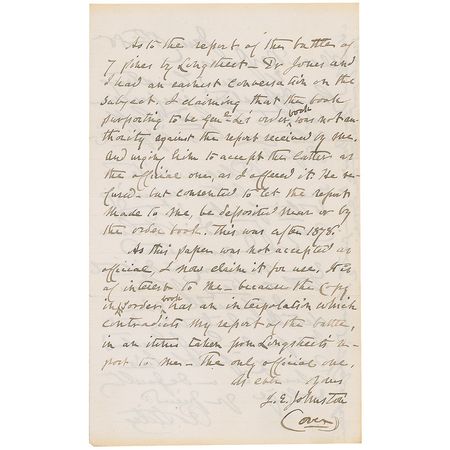 As to the report of the battle of
7 pines by Longstreet - Dr Jones and
I had an earnest conversation on the
subject. I claiming that the book
purporting to be Genl L's order book was not au-
thority against the report received by me.
And urging him to accept the latter as
the official one, as I offered it. He re-
fused - but consented to let the report
made to me, be deposited near or by
the order book. This was after 1878.
As this paper was not accepted as
official, I now claim it for use. It is
of interest to me - because the copy
in order book has an interpolation which
contradicts my report of the battle,
in an item taken from Longstreet's re-
port to me - The only official one.
As ever yours
J. E. Johnston
(over)